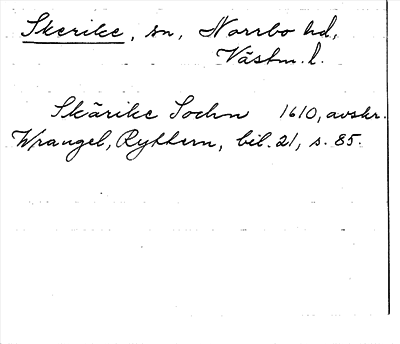 Skerike, sn, Norrbo hd,
Västm. l.
Skärike Sochn 1610, avskr.
Wrangel, Ryttern, bil. 21, s. 85.